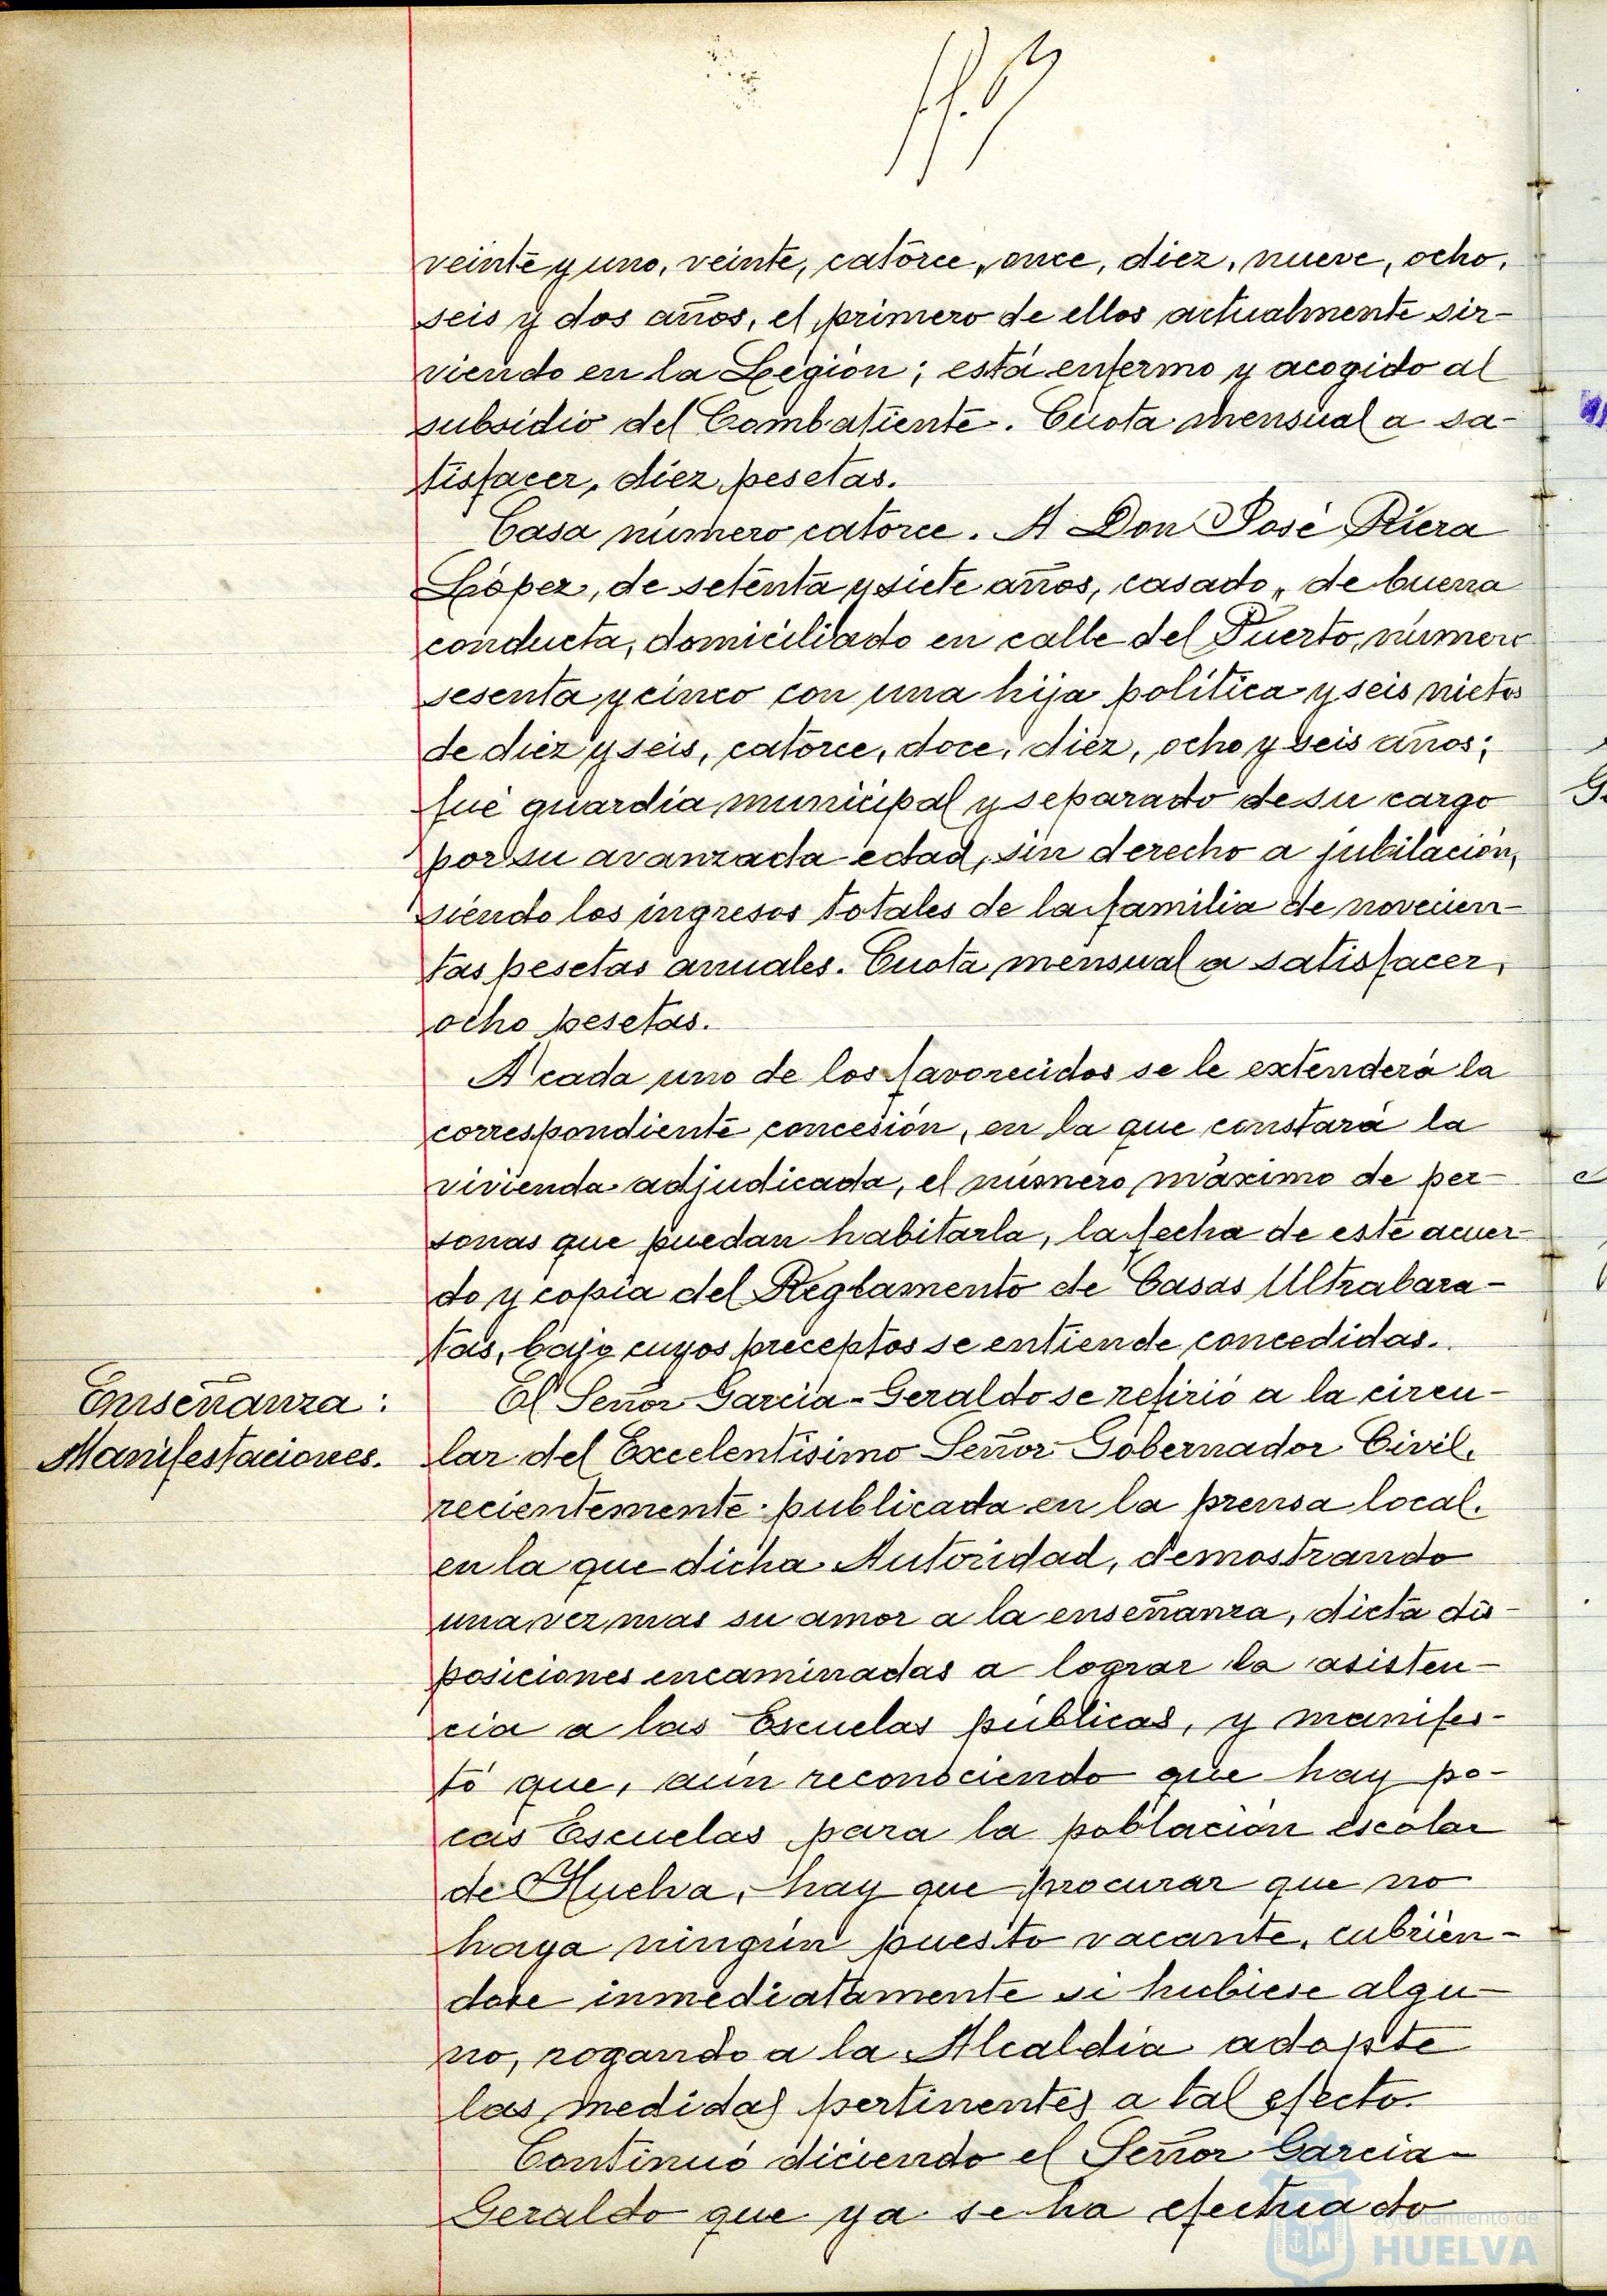 veinte y uno, veinte, catorce, once, diez, nueve, ocho,
seis y dos años, el primero de ellos actualmente sir-
viendo en la Legión; está enfermo y acogido al
subsidio del Combatiente. Cuota mensual a sa-
tisfacer, diez pesetas.
Casa número catorce. A Don José Riera
López, de setenta y siete años, casado, de buena
conducta, domiciliado en calle del Puerto, número
sesenta y cinco con una hija política y seis nietos
de diez y seis, catorce, doce, diez, ocho y seis años;
fué guardia municipal y separado de su cargo
por su avanzada edad, sin derecho a jubilación,
siendo los ingresos totales de la familia de novecien-
tas pesetas anuales. Cuota mensual a satisfacer,
ocho pesetas.
A cada uno de los favorecidos se le extenderá la
correspondiente concesión, en la que constará la
vivienda adjudicada, el número máximo de per-
sonas que puedan habitarla, la fecha de este acuer-
do y copia del Reglamento de Casas Ultrabara-
tas, bajo cuyos preceptos se entiende concedidas.
Enseñanza:
Manifestaciones.
El Señor García-Geraldo se refirió a la circu-
lar del Excelentísimo Señor Gobernador Civil,
recientemente publicada en la prensa local,
en la que dicha Autoridad, demostrando
una vez mas su amor a la enseñanza, dicta dis-
posiciones encaminadas a lograr la asisten-
cia a las Escuelas públicas, y manifes-
tó que, aún reconociendo que hay po-
cas Escuelas para la población escolar
de Huelva, hay que procurar que no
haya ningún puesto vacante, cubrién-
dose inmediatamente si hubiese algu-
no, rogando a la Alcaldía adopte
las medidas pertinentes a tal efecto.
Continuó diciendo el Señor García-
Geraldo que ya se ha efectuado
Ayuntamiento de
HUELVA